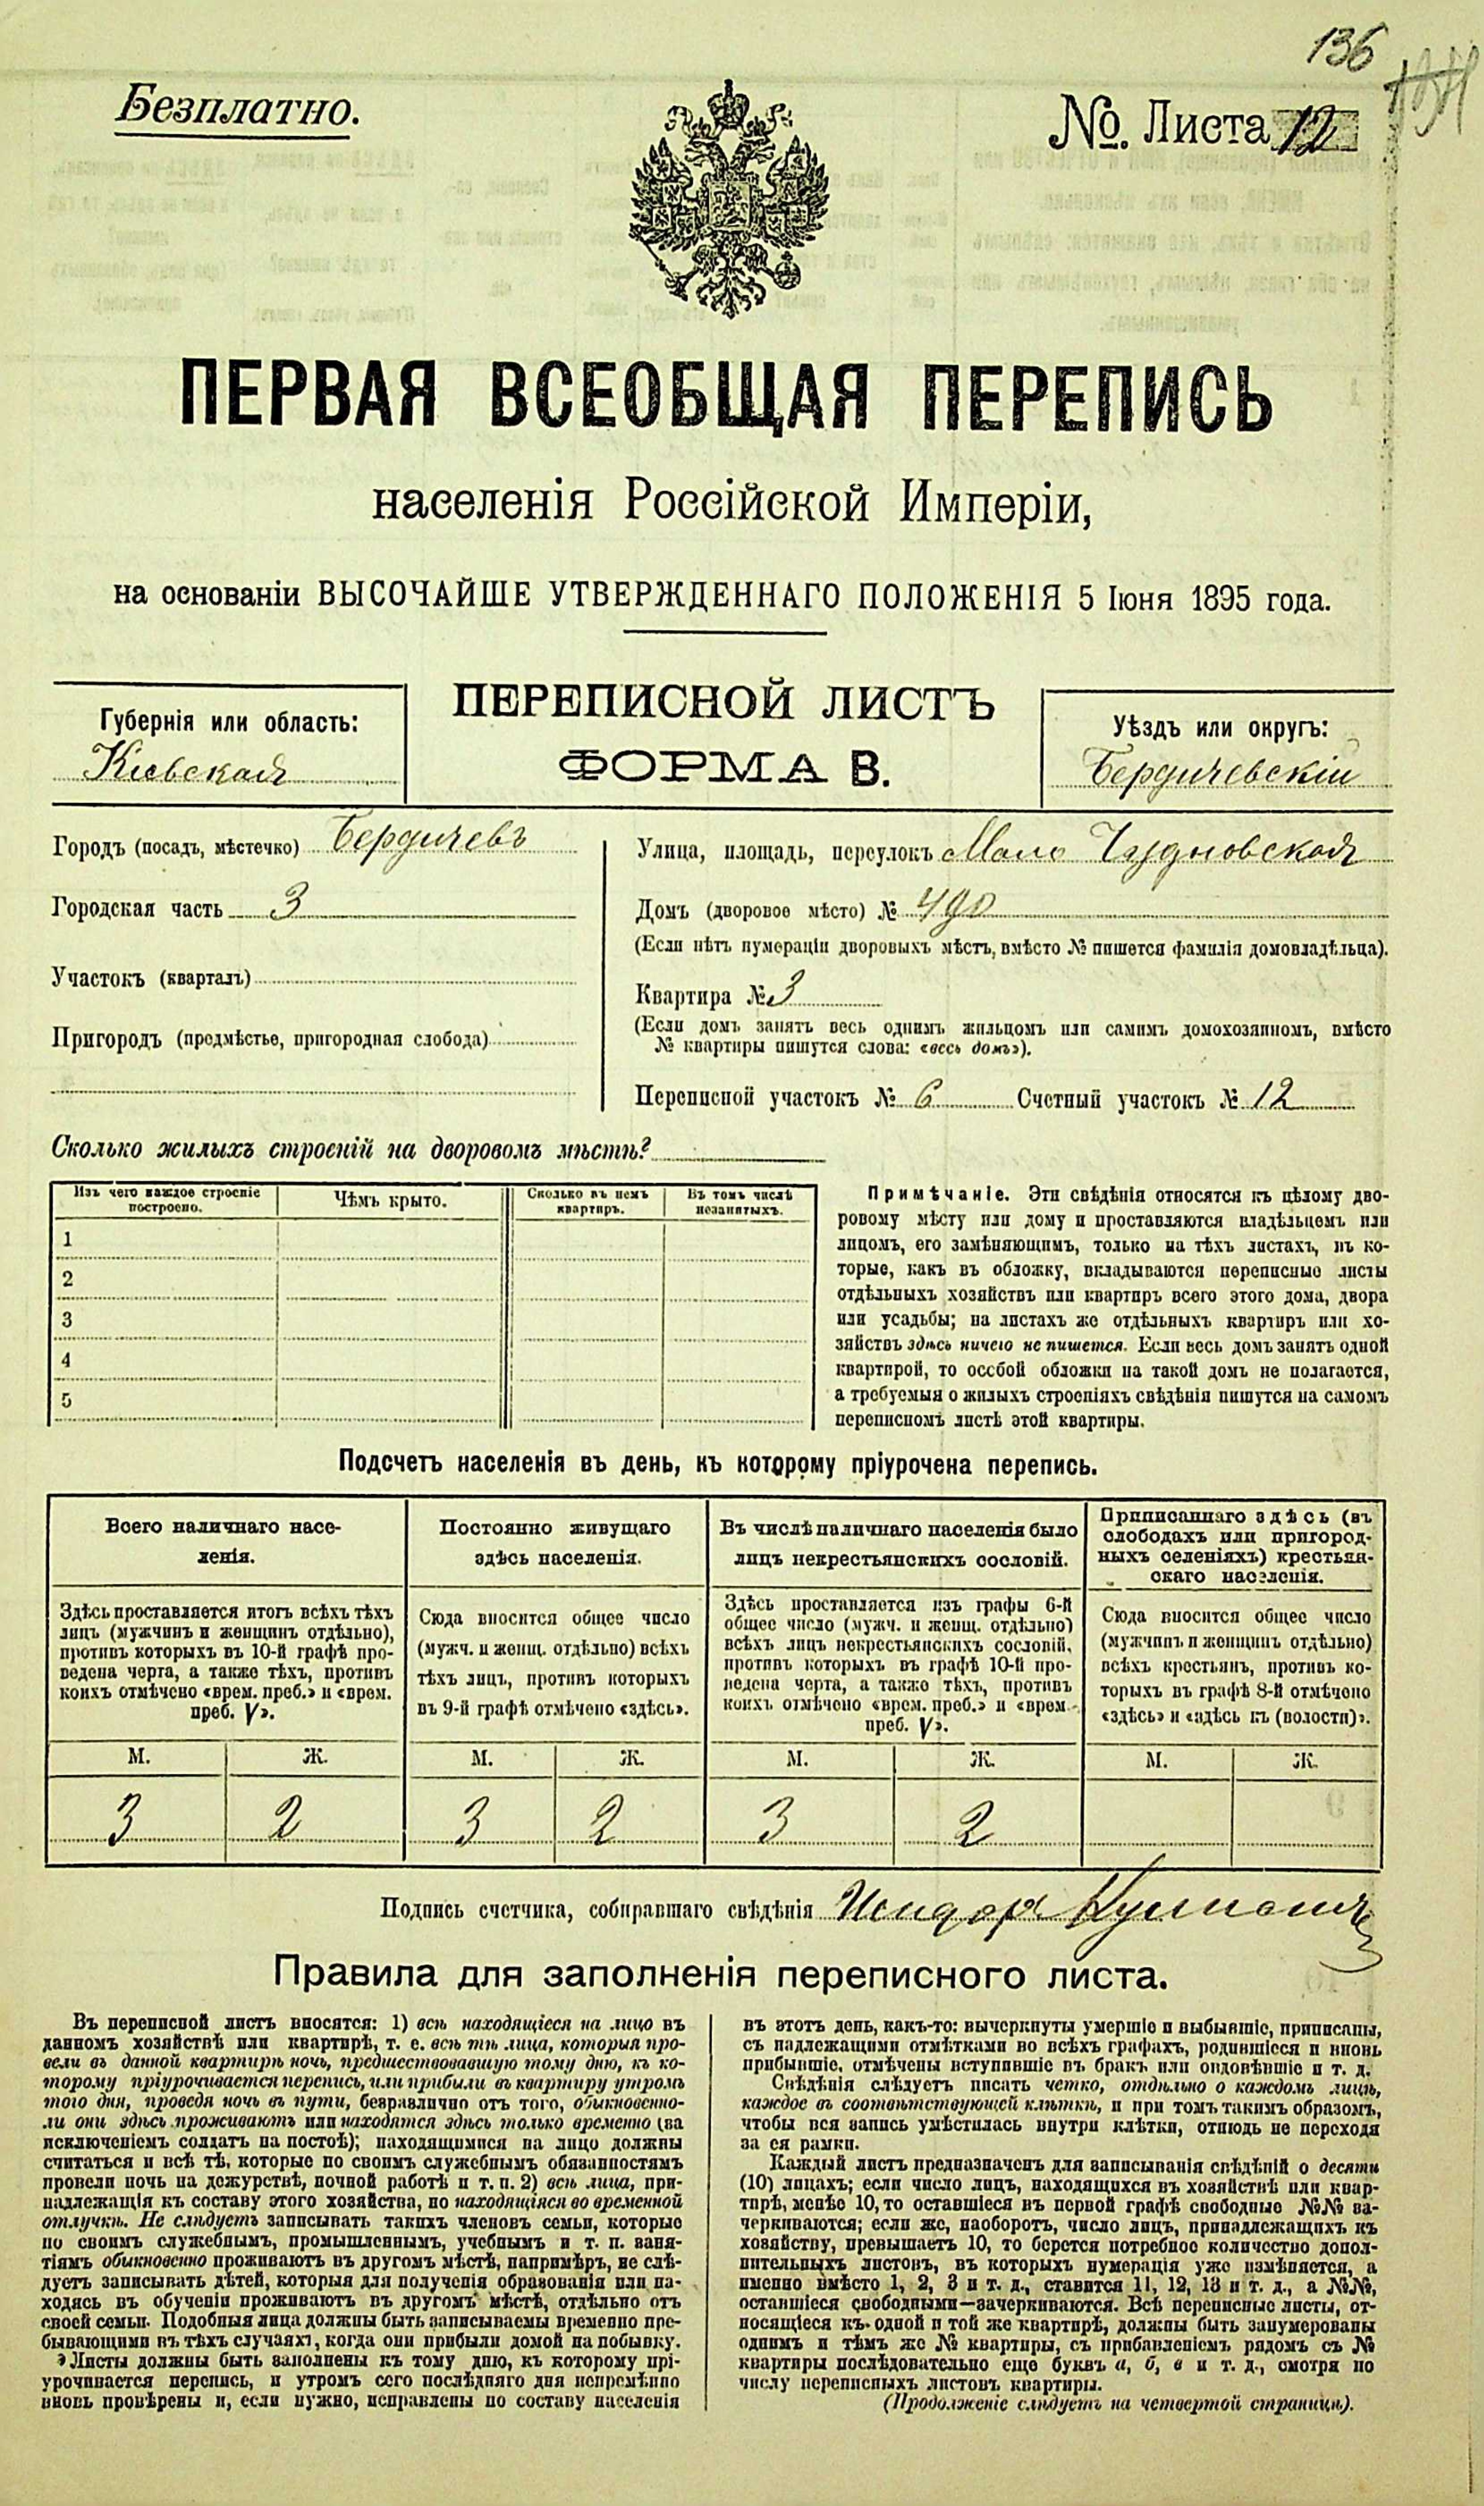 136
Безплатно.
№. Листа 12
ПЕРВАЯ ВСЕОБЩАЯ ПЕРЕПИСЬ
населенія Россійской Имперіи,
на основаніи ВЫСОЧАЙШЕ УТВЕРЖДЕННАГО ПОЛОЖЕНІЯ 5 Іюня 1895 года.
ПЕРЕПИСНОЙ ЛИСТЪ
ФОРМА В.
Губернія или область:
Кіевская
Уѣздъ или округъ:
Бердичевскій
Городъ (посадъ, мѣстечко) Бердичевъ
Городская часть 3
Участокъ (кварталъ)
Пригородъ (предмѣстье, пригородная слобода)
Улица, площадь, переулокъ Мало Чудновская
Домъ (дворовое мѣсто) № 490
(Если нѣтъ нумераціи дворовыхъ мѣстъ, вмѣсто № пишется фамилія домовладѣльца).
Квартира № 3
(Если домъ занятъ весь однимъ жильцомъ или самимъ домохозяиномъ, вмѣсто
№ квартиры пишутся слова: «весь домъ»).
Переписной участокъ № 6 Счетный участокъ № 12
Сколько жилыхъ строеній на дворовомъ мѣстѣ?
Изъ чего каждое строеніе
построено.
Чѣмъ крыто.
Сколько въ немъ
квартиръ.
Въ томъ числѣ
незанятыхъ.
1
2
3
4
5
Примѣчаніе. Эти свѣдѣнія относятся къ цѣлому дво-
ровому мѣсту или дому и проставляются владѣльцемъ или
лицомъ, его замѣняющимъ, только на тѣхъ листахъ, въ ко-
торые, какъ въ обложку, вкладываются переписные листы
отдѣльныхъ хозяйствъ или квартиръ всего этого дома, двора
или усадьбы; на листахъ же отдѣльныхъ квартиръ или хо-
зяйствъ здѣсь ничего не пишется. Если весь домъ занятъ одной
квартирой, то особой обложки на такой домъ не полагается,
а требуемыя о жилыхъ строеніяхъ свѣдѣнія пишутся на самомъ
переписномъ листѣ этой квартиры.
Подсчетъ населенія въ день, къ которому пріурочена перепись.
Всего наличнаго насе-
ленія.
Здѣсь проставляется итогъ всѣхъ тѣхъ
лицъ (мужчинъ и женщинъ отдѣльно),
противъ которыхъ въ 10-й графѣ про-
ведена черта, а также тѣхъ, противъ
коихъ отмѣчено «врем. преб.» и «врем.
преб. V».
М. Ж.
3 2
Постоянно живущаго
здѣсь населенія.
Сюда вносится общее число
(мужч. и женщ. отдѣльно) всѣхъ
тѣхъ лицъ, противъ которыхъ
въ 9-й графѣ отмѣчено «здѣсь».
М. Ж.
3 2
Въ числѣ наличнаго населенія было
лицъ некрестьянскихъ сословій.
Здѣсь проставляется изъ графы 6-й
общее число (мужч. и женщ. отдѣльно)
всѣхъ лицъ некрестьянскихъ сословій,
противъ которыхъ въ графѣ 10-й про-
ведена черта, а также тѣхъ, противъ
коихъ отмѣчено «врем. преб.» и «врем.
преб. V».
М. Ж.
3 2
Приписаннаго здѣсь (въ
слободахъ или пригород-
ныхъ селеніяхъ) крестьян-
скаго населенія.
Сюда вносится общее число
(мужчинъ и женщинъ отдѣльно)
всѣхъ крестьянъ, противъ ко-
торыхъ въ графѣ 8-й отмѣчено
«здѣсь» и «здѣсь къ (волости)».
М. Ж.
Подпись счетчика, собиравшаго свѣдѣнія Исидоръ
Правила для заполненія переписного листа.
Въ переписной листъ вносятся: 1) всѣ находящіеся на лицо въ
данномъ хозяйствѣ или квартирѣ, т. е. всѣ тѣ лица, которыя про-
вели въ данной квартирѣ ночь, предшествовавшую тому дню, къ ко-
торому пріурочивается перепись, или прибыли въ квартиру утромъ
того дня, проведя ночь въ пути, безразлично отъ того, обыкновенно-
ли они здѣсь проживаютъ или находятся здѣсь только временно (за
исключеніемъ солдатъ на постоѣ); находящимися на лицо должны
считаться и всѣ тѣ, которые по своимъ служебнымъ обязанностямъ
провели ночь на дежурствѣ, ночной работѣ и т. п. 2) всѣ лица, при-
надлежащія къ составу этого хозяйства, но находящіяся во временной
отлучкѣ. Не слѣдуетъ записывать такихъ членовъ семьи, которые
по своимъ служебнымъ, промышленнымъ, учебнымъ и т. п. заня-
тіямъ обыкновенно проживаютъ въ другомъ мѣстѣ, напримѣръ, не слѣ-
дуетъ записывать дѣтей, которыя для полученія образованія или на-
ходясь въ обученіи проживаютъ въ другомъ мѣстѣ, отдѣльно отъ
своей семьи. Подобныя лица должны быть записываемы временно пре-
бывающими въ тѣхъ случаяхъ, когда они прибыли домой на побывку.
Листы должны быть заполнены къ тому дню, къ которому прі-
урочивается перепись, и утромъ сего послѣдняго дня непремѣнно
вновь провѣрены и, если нужно, исправлены по составу населенія
въ этотъ день, какъ-то: вычеркнуты умершіе и выбывшіе, приписаны,
съ надлежащими отмѣтками во всѣхъ графахъ, родившіеся и вновь
прибывшіе, отмѣчены вступившіе въ бракъ или овдовѣвшіе и т. д.
Свѣдѣнія слѣдуетъ писать четко, отдѣльно о каждомъ лицѣ,
каждое въ соотвѣтствующей клѣткѣ, и при томъ такимъ образомъ,
чтобы вся запись умѣстилась внутри клѣтки, отнюдь не переходя
за ея рамки.
Каждый листъ предназначенъ для записыванія свѣдѣній о десяти
(10) лицахъ; если число лицъ, находящихся въ хозяйствѣ или квар-
тирѣ, менѣе 10, то оставшіеся въ первой графѣ свободные №№ за-
черкиваются; если же, наоборотъ, число лицъ, принадлежащихъ къ
хозяйству, превышаетъ 10, то берется потребное количество допол-
нительныхъ листовъ, въ которыхъ нумерація уже измѣняется, а
именно вмѣсто 1, 2, 3 и т. д., ставится 11, 12, 13 и т. д., а №№,
оставшіеся свободными—зачеркиваются. Всѣ переписные листы, от-
носящіеся къ одной и той же квартирѣ, должны быть занумерованы
однимъ и тѣмъ же № квартиры, съ прибавленіемъ рядомъ съ №
квартиры послѣдовательно еще буквъ а, б, в и т. д., смотря по
числу переписныхъ листовъ квартиры.
(Продолженіе слѣдуетъ на четвертой страницѣ).